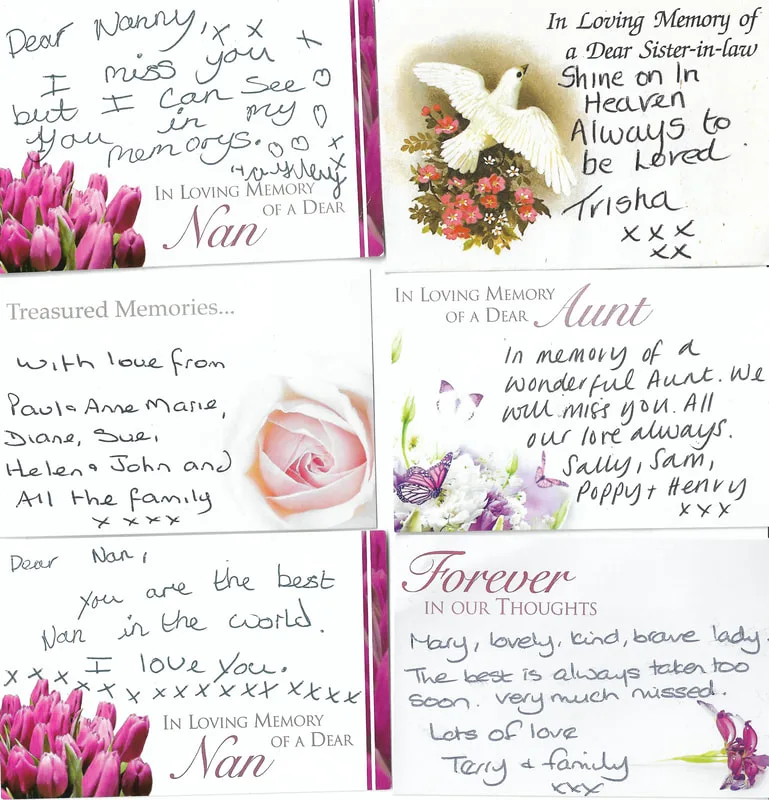 Dear Nanny, x x x
I miss you
but I can see
you in my
memorys.
x
x
IN LOVING MEMORY
OF A DEAR
Nan
In Loving Memory of
a Dear Sister-in-law
Shine on In
Heaven
Always to
be Loved
Trisha
x x x
x x
Treasured Memories...
With love from
Paul & Anne Marie,
Diane, Sue,
Helen & John and
All the family
x x x x
IN LOVING MEMORY
OF A DEAR Aunt
In memory of a
wonderful Aunt. We
will miss you. All
our love always.
Sally, Sam,
Poppy + Henry
x x x
Dear Nan,
You are the best
Nan in the world.
I love you.
x x x x x x x x x x x x x x x x x x
IN LOVING MEMORY
OF A DEAR
Nan
Forever
IN OUR THOUGHTS
Mary, lovely, kind, brave lady.
The best is always taken too
soon. very much missed.
Lots of love
Terry & family
xxx